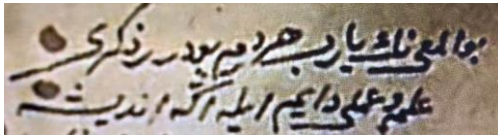 بو المعی نك یارب هر دم بودر ذكری
علم و عملی دایم ایله اكه اندیشه